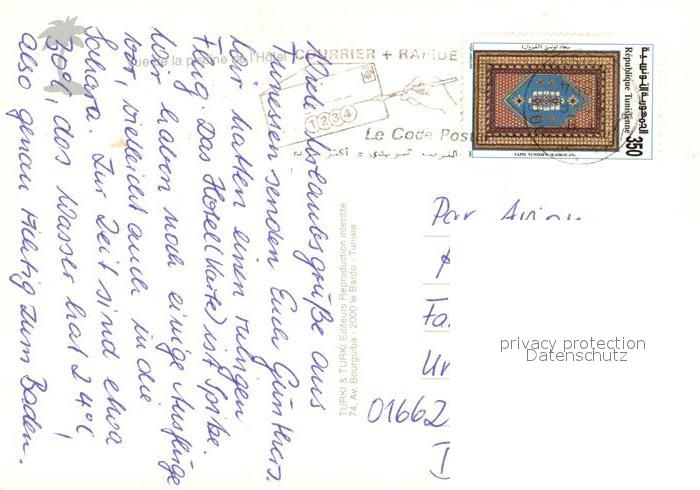 Viele Urlaubsgrüße aus
Tunesien senden Euch Günthers.
Wir hatten einen ruhigen
Flug. Das Hotel (Karte) ist Spitze.
Wir haben noch einige Ausflüge
vor, vielleicht auch in die
Sahara. Zur Zeit sind etwa
30°C, das Wasser hat 24°C,
also genau richtig zum Baden.
Vue de la piscine de l'Hôtel
COURRIER + RAPIDE
1 2 3 4
Le Code Postal
سجاد تونسي (القيروان)
الجمهورية التونسية
République Tunisienne
350
TAPIS TUNISIEN (KAIROUAN)
TURKI & TURKI Editeurs Reproduction interdite
74, Av. Bourguiba - 2000 le Bardo - Tunisie
Par Avion
Fa
Un
01662
D
privacy protection
Datenschutz